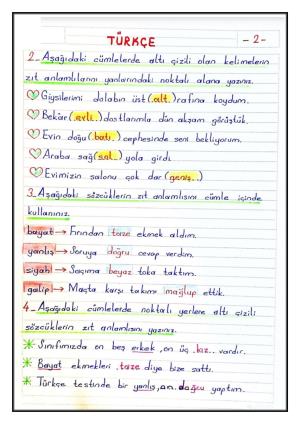 TÜRKÇE
- 2 -
2- Aşağıdaki cümlelerde altı çizili olan kelimelerin
zıt anlamlılarını yanlarındaki noktalı alana yazınız.
Giysilerimi dolabın üst (.alt.) rafına koydum.
Bekâr (.evli..) dostlarımla dün akşam görüştük.
Evin doğu (.batı.) cephesinde seni bekliyorum.
Araba sağ (.sol..) yola girdi.
Evimizin salonu çok dar (geniş..)
3- Aşağıdaki sözcüklerin zıt anlamlısını cümle içinde
kullanınız.
bayat → Fırından taze ekmek aldım.
yanlış → Soruya doğru cevap verdim.
siyah → Saçıma beyaz toka taktım.
galip → Maçta karşı takımı mağlup ettik.
4- Aşağıdaki cümlelerde noktalı yerlere altı çizili
sözcüklerin zıt anlamlısını yazınız.
Sınıfımızda on beş erkek, on üç .kız.. vardır.
Bayat ekmekleri .taze diye bize sattı.
Türkçe testinde bir yanlış, on. doğru yaptım.